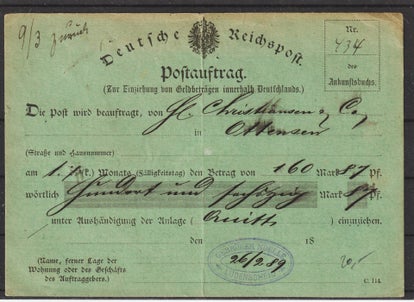 9/3 zurück
Deutsche Reichspost.
Nr.
434
des
Ankunftsbuchs.
Postauftrag.
(Zur Einziehung von Geldbeträgen innerhalb Deutschlands.)
Die Post wird beauftragt, von H. Christiansen & Co,
in Ottensen
(Straße und Hausnummer)
am 1. Monats (Fälligkeitstag) den Betrag von 160 Mark 87 Pf.
wörtlich Hundert und sechszig Mark 87 Pf.
unter Aushändigung der Anlage (Quitt) einzuziehen.
den 18
26/2.89
(Name, ferner Lage der
Wohnung oder des Geschäfts
des Auftraggebers.)
C. 114.